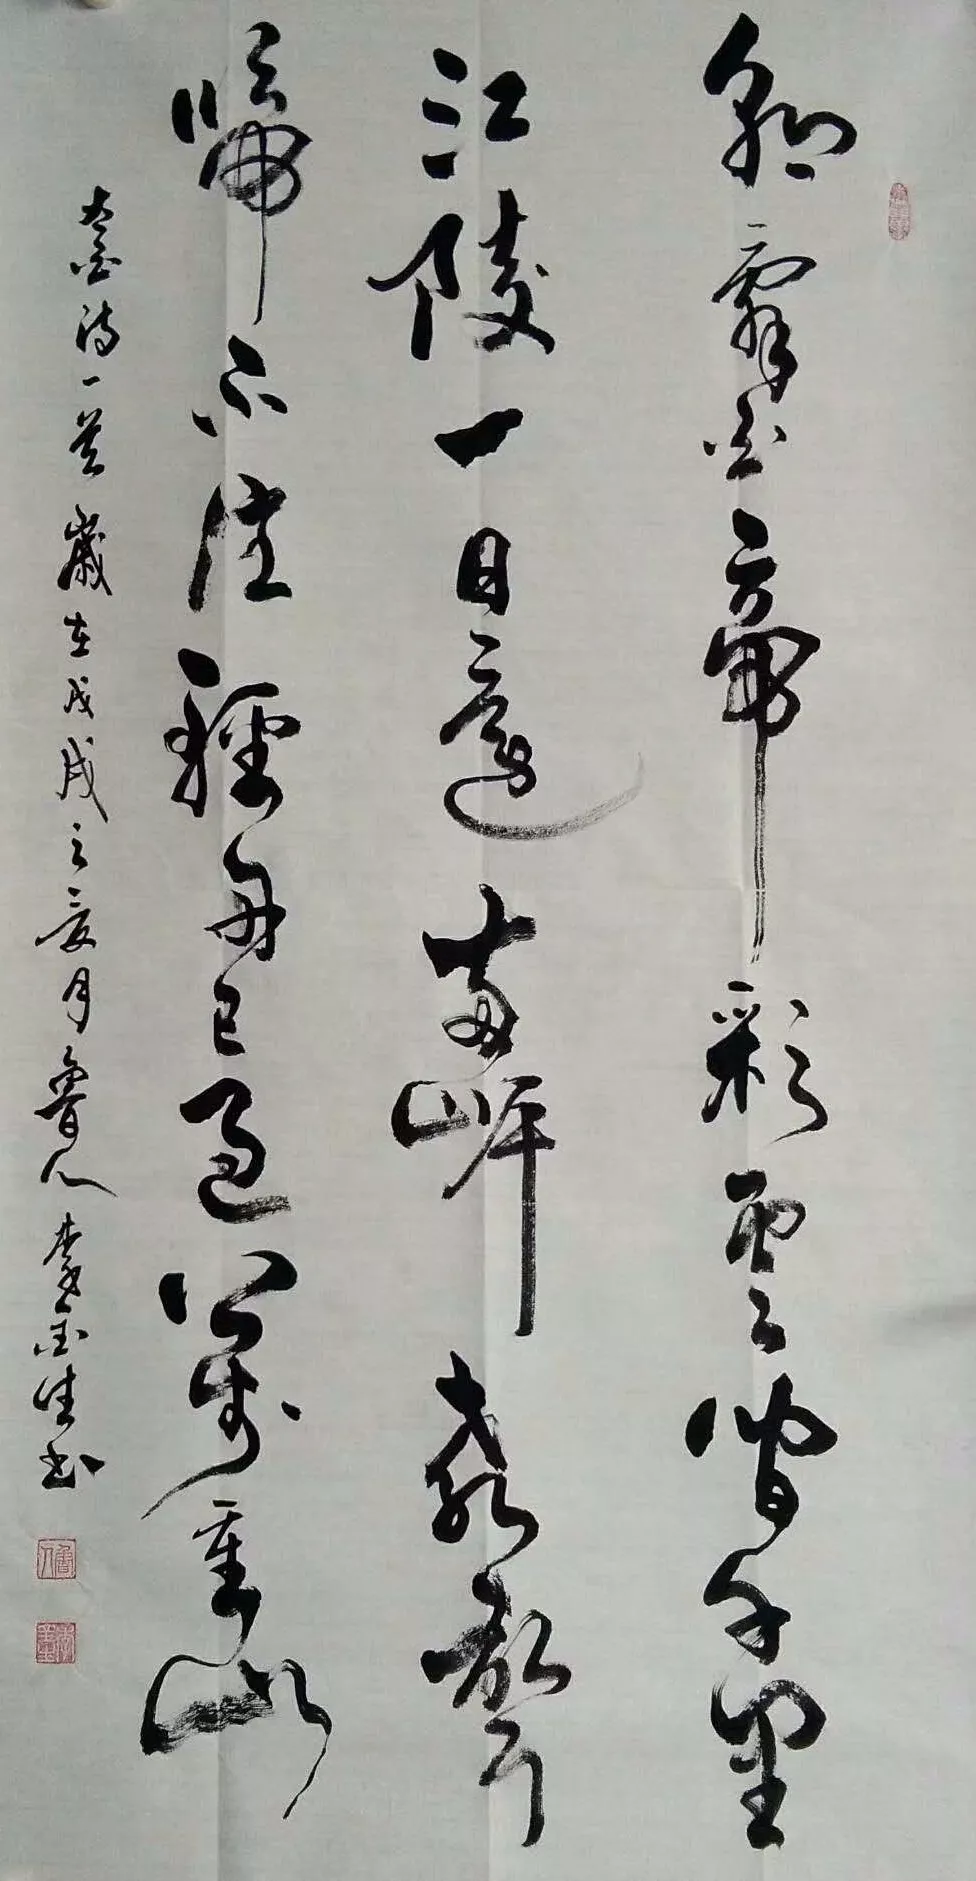 朝辭白帝彩雲間千里
江陵一日還両岸猿聲
啼不住輕舟已過萬重山
李白詩一首歲在戊戌之夏月魯人李金生書
魯人